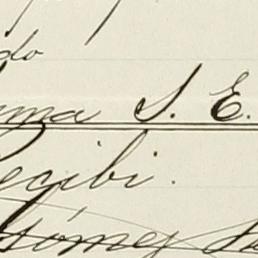 do
ma S. E.
Recibi.
Gómez